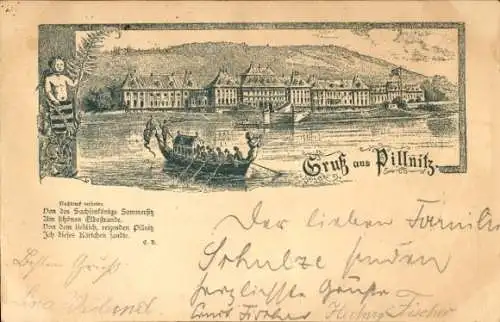 Gruß aus Pillnitz.
Nachdruck verboten.
Von des Sachsenkönigs Sommersitz
Am schönen Elbestrande.
Von dem lieblich, reizenden Pillnitz
Ich dieses Kärtchen sandte.
C. R.
Der lieben Familie
Schulze senden
herzlichste Grüße
Ernst Fischer Fischer
Besten Gruß